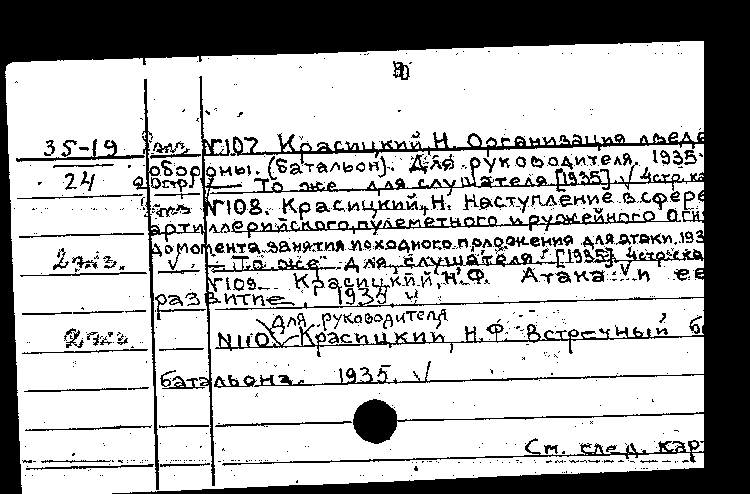 35-19 №107. Красицкий, Н. Организация
24 обороны. (батальон). Для руководителя. 1935
— То же для слушателя [1935] √ 4стр. ка
№108. Красицкий, Н. Наступление в сфере
артиллерийского, пулеметного и ружейного огн
до момента занятия походного положения для атаки. 193
2 экз. √ — То же для слушателя [1935] 4стр. ка
№109. Красицкий, Н.Ф. Атака и ее
развитие, 1935. √
Для руководителя
2 экз. №110 Красицкий, Н.Ф. Встречный б
батальона. 1935. √
См. след. кар